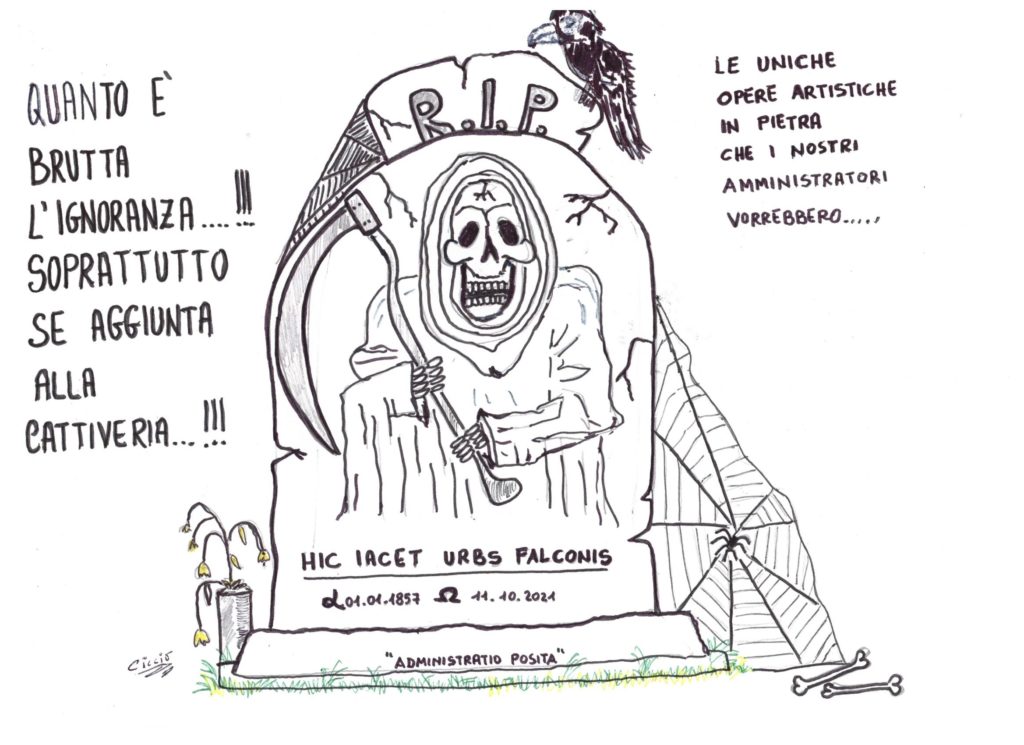 QUANTO È
BRUTTA
L'IGNORANZA....!!!
SOPRATTUTTO
SE AGGIUNTA
ALLA
CATTIVERIA...!!!
R.I.P.
LE UNICHE
OPERE ARTISTICHE
IN PIETRA
CHE I NOSTRI
AMMINISTRATORI
VORREBBERO.....
HIC IACET URBS FALCONIS
α 01.01.1857 Ω 11.10.2021
"ADMINISTRATIO POSITA"
Ciccio